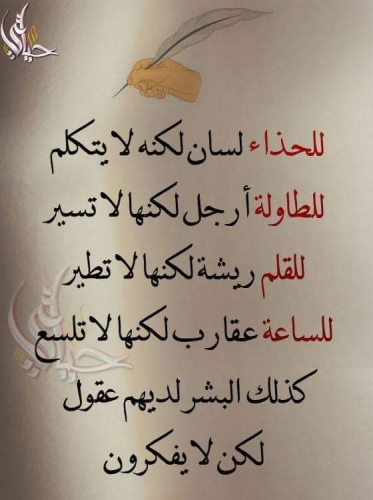 للحذاء لسان لكنه لا يتكلم
للطاولة أرجل لكنها لا تسير
للقلم ريشة لكنها لا تطير
للساعة عقارب لكنها لا تلسع
كذلك البشر لديهم عقول
لكن لا يفكرون